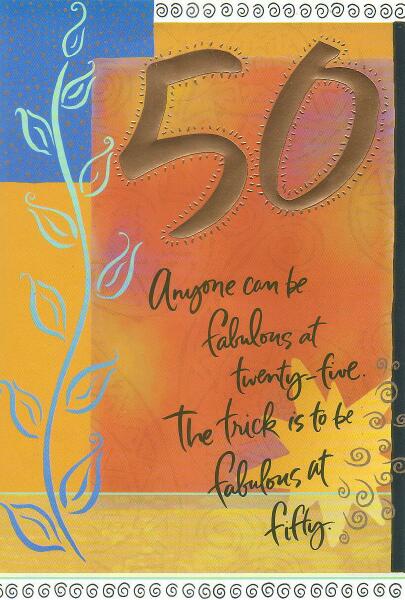 50
Anyone can be
fabulous at
twenty-five.
The trick is to be
fabulous at
fifty.